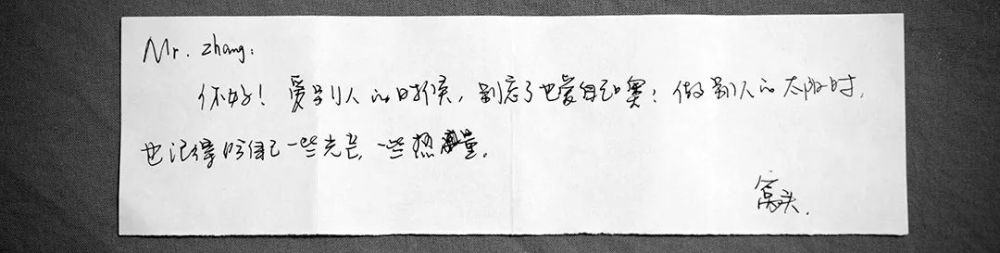 Mr. Zhang:
你好！爱别人的时候，别忘了也爱自己噢；做别人的太阳时，
也记得给自己一些光芒，一些热量。
窝头.